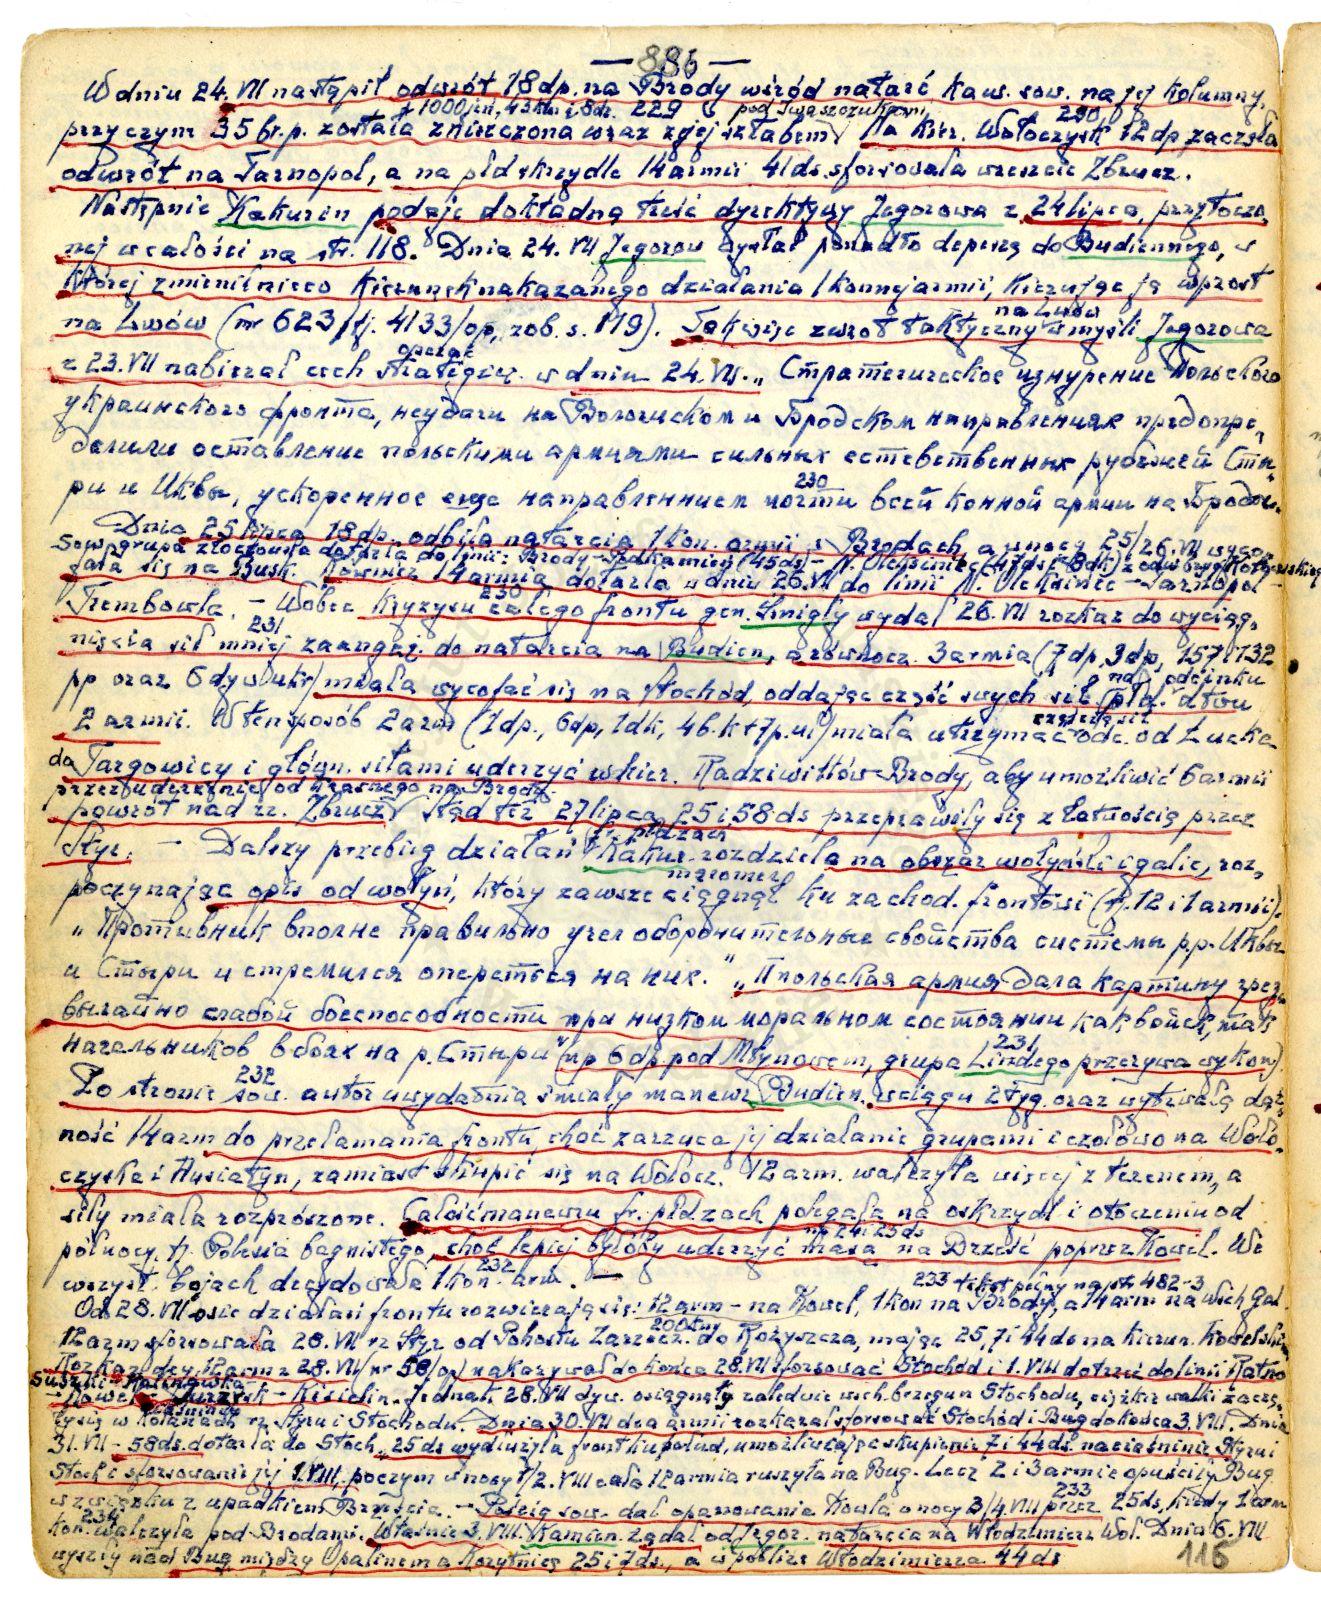 — 886 —
W dniu 24. VII nastąpił odwrót 18 dp. na Brody wśród natarć kaw. sow. na jej kolumny,
+ 1000 jeń, 43 km i 8 dz. 229 pod Iwaszczukami 230
przyczym 35 br. p. została zniszczona wraz z jej sztabem. Na kier. Wołoczysk 12 dp zaczęła
odwrót na Tarnopol, a na płd skrzydle 14 armii 41 ds. sforsowała wreszcie Zbrucz.
Następnie Kakurin podaje dokładną treść dyrektywy Jegorowa z 24 lipca, przytoczo-
nej w całości na str. 118. Dnia 24. VII Jegorow wysłał ponadto depeszę do Budiennego, w
której zmienił nieco kierunek nakazanego działania 1 konnej armii, kierując ją wprost
na Lwów (nr 623/tj. 4133/op, zob. s. 119). Tak więc zwrot taktyczny na Lwów w myśli Jegorowa
z 23. VII nabierał cech operac. strategicz. w dniu 24. VII. „Стратегическое изнурение польского
украинского фронта, неудачи на Волочиском и Бродском направлениях предопре-
делили оставление польскими армиями сильных естественных рубежей Сты-
ри и Иквы, ускоренное еще направлением почти всей конной армии на Броды". 230
Dnia 25 lipca 18 dp. odbiła natarcia 1 kon. armii w Brodach, a w nocy 25/26. VII wyco-
Sow. grupa złoczowska dotarła do linii: Brody–Podkamień (45 ds) – N. Oleksiniec (47 ds i 8 dk) z odw. bryg. Kotowskiego
fała się na Busk. Również 14 armia dotarła w dniu 26. VII do linii N. Oleksiniec – Tarnopol –
Trembowla. 230 – Wobec kryzysu całego frontu gen. Śmigły wydał 26. VII rozkaz do wyciąg-
nięcia sił mniej zaangaż. do natarcia na Budien, 231 a równocz. 3 armia (7 dp, 3 dp, 157 i 132
pp oraz 6 dyw. ukr) miała wycofać się na Stochód, oddając część swych sił na płd. odcinku dtwu
2 armii. W ten sposób 2 arm (1 dp., 6 dp, 1 dk, 4 b. k + 7 p. uł) miała utrzymać częścią sił odc. od Łucka
do Targowicy i główn. siłami uderzyć w kier. Radziwiłłów–Brody, aby umożliwić 6 armii
przez uderzenie od Krasnego na Brody
powrót nad rz. Zbrucz. Stąd też 27 lipca 25 i 58 ds przeprawiły się z łatwością przez
Styr. – Dalszy przebieg działań fr. płd. zach Kakur. rozdziela na obszar wołyński i galic, roz-
poczynając opis od wołyń, który zawsze ciągnął ku zachod. frontowi (tj. 12 i 1 armii).
„Противник вполне правильно учел оборонительные свойства системы р.р. Иквы
и Стыри и стремился опереться на них." „Польская армия дала картину чрез-
вычайно слабой боеспособности при низком моральном состоянии как войск, так
начальников в боях на р. Стыри" (np 6 dp. pod Młynowem, grupa Lindego przerywa wykon.) 231
Po stronie sow. autor uwydatnia śmiały manewr Budien. w ciągu 2 tyg. oraz wytrwałą dąż- 232
ność 14 arm do przełamania frontu, choć zarzuca jej działanie grupami i czołowo na Woło-
czyska i Husiatyn, zamiast skupić się na Wołocz. 12 arm. walczyła więcej z terenem, a
siły miała rozprószone. Całość manewru fr. płd. zach polegała na oskrzydl i otoczeniu od
północy, tj. Polesia bagnistego, choć lepiej byłoby uderzyć masą np 24 i 25 ds na Brześć poprzez Kowel. We
wszyst. bojach decydowała 1 kon. arm. 232 —
233 tekst pełny na str 482-3
Od 28. VII osie działań frontu rozwierają się: 12 arm – na Kowel, 1 kon na Brody, a 14 arm na wsch Gal.
12 arm sforsowała 28. VII rz Styr od Pohostu Zarzecz. do Rożyszcza, mając 25, 7 i 44 ds na kierun. Kowelskim
Rozkaz dcy 12 arm z 28. VII (nr 58/op) nakazywał do końca 28. VII sforsować Stochód i 1. VIII dotrzeć do linii Ratno
– Kowel – Turzysk – Kisielin. Jednak 28. VII dyw. osiągnęły zaledwie wsch. brzegu Stochodu, ciężkie walki zaczę-
ły się w kolanach rz Styru i Stochodu. Dnia 30. VII dca armii rozkazał sforsować Stochód i Bug do końca 3. VIII. Dnia
31. VII – 58 ds. dotarła do Stoch., 25 ds wydłużyła front ku połud, umożliwiając skupienie 7 i 44 ds. na ciaśninie Styru i
Stoch i sforsowanie jej 1. VIII, poczym w nocy 1/2. VIII cała 12 armia ruszyła na Bug. Lecz 2 i 3 armie opuściły Bug
w związku z upadkiem Brześcia. – Pościg sow. dał opanowanie Kowla w nocy 3/4. VIII przez 233 25 ds, kiedy 1 arm
kon. 234 walczyła pod Brodami. Właśnie 3. VIII. Kamien. żądał od Jegor. natarcia na Włodzimierz Woł. Dnia 6. VIII
wyszły nad Bug między Opalinem a Korytnicą 25 i 7 ds., a w pobliże Włodzimierza 44 ds
116